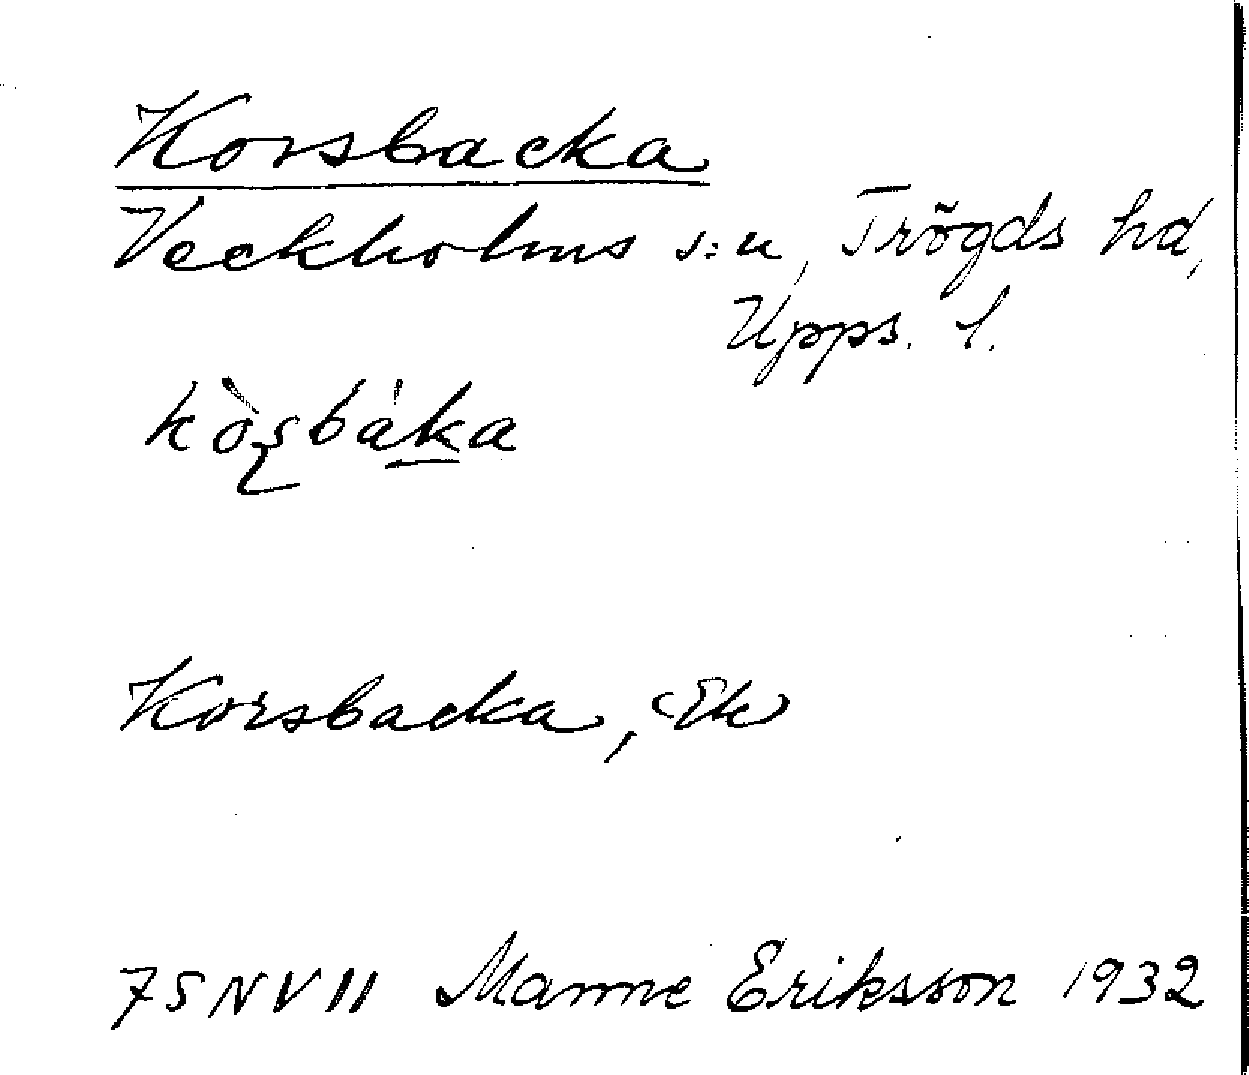 Korsbacka
Veckholms s:n, Trögds hd,
Upps. l.
kò̀ʂbáka
Korsbacka, Ek
75NVII Manne Eriksson 1932